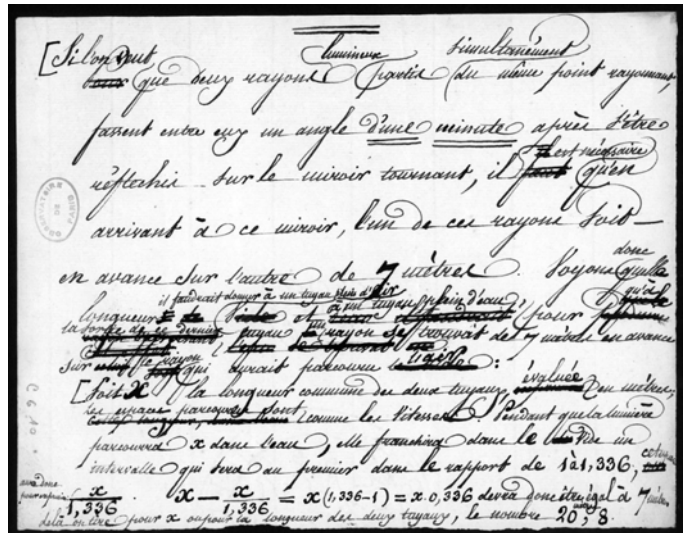 [Si l'on veut lumineux simultanément
que deux rayons partis du même point rayonnant,
fassent entre eux un angle d'une minute après s'être
réflechis sur le miroir tournant, il est nécessaire qu'en
arrivant à ce miroir, l'un de ces rayons soit
en avance sur l'autre de 7 mètres. Voyons donc quelle
longueur il faudrait donner à un tuyau plein d'air et à un tuyau plein d'eau, pour qu'à
la sortie de ce dernier tuyau un rayon se trouvât de 7 mètres en avance
sur le rayon qui aurait parcouru le :
[Soit X la longueur commune des deux tuyaux évaluée en mètres;
Les espaces parcourus sont comme les vitesses. Pendant que la lumière
parcourra x dans l'eau, elle franchira dans le vide un
intervalle qui sera au premier dans le rapport de 1 à 1,336,
x/1,336 . x - x/1,336 = x(1,336-1) = x.0,336 devra donc être égal à 7 mètres.
delà on tire pour x ou pour la longueur des deux tuyaux, le nombre 20,8.
OBSERVATOIRE DE PARIS
C 6 10